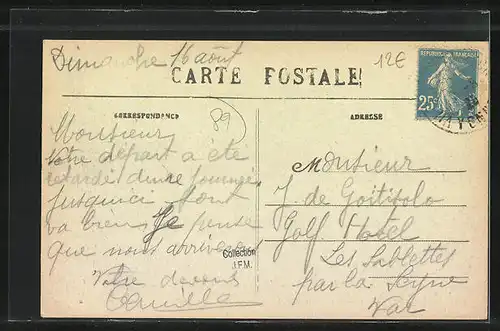 Dimanche 16 août
12€
CARTE POSTALE
REPUBLIQUE FRANÇAISE
25c
CORRESPONDANCE
89
ADRESSE
Monsieur
Votre départ a été
retardé d'une journée
Jusqu'ici tout
va bien. Je pense
que nous arriverons
Votre
Camille
Collection
J.F.M.
Monsieur
J. de Goitisolo
Golf Hotel
Les Sablettes
par la Seyne
Var